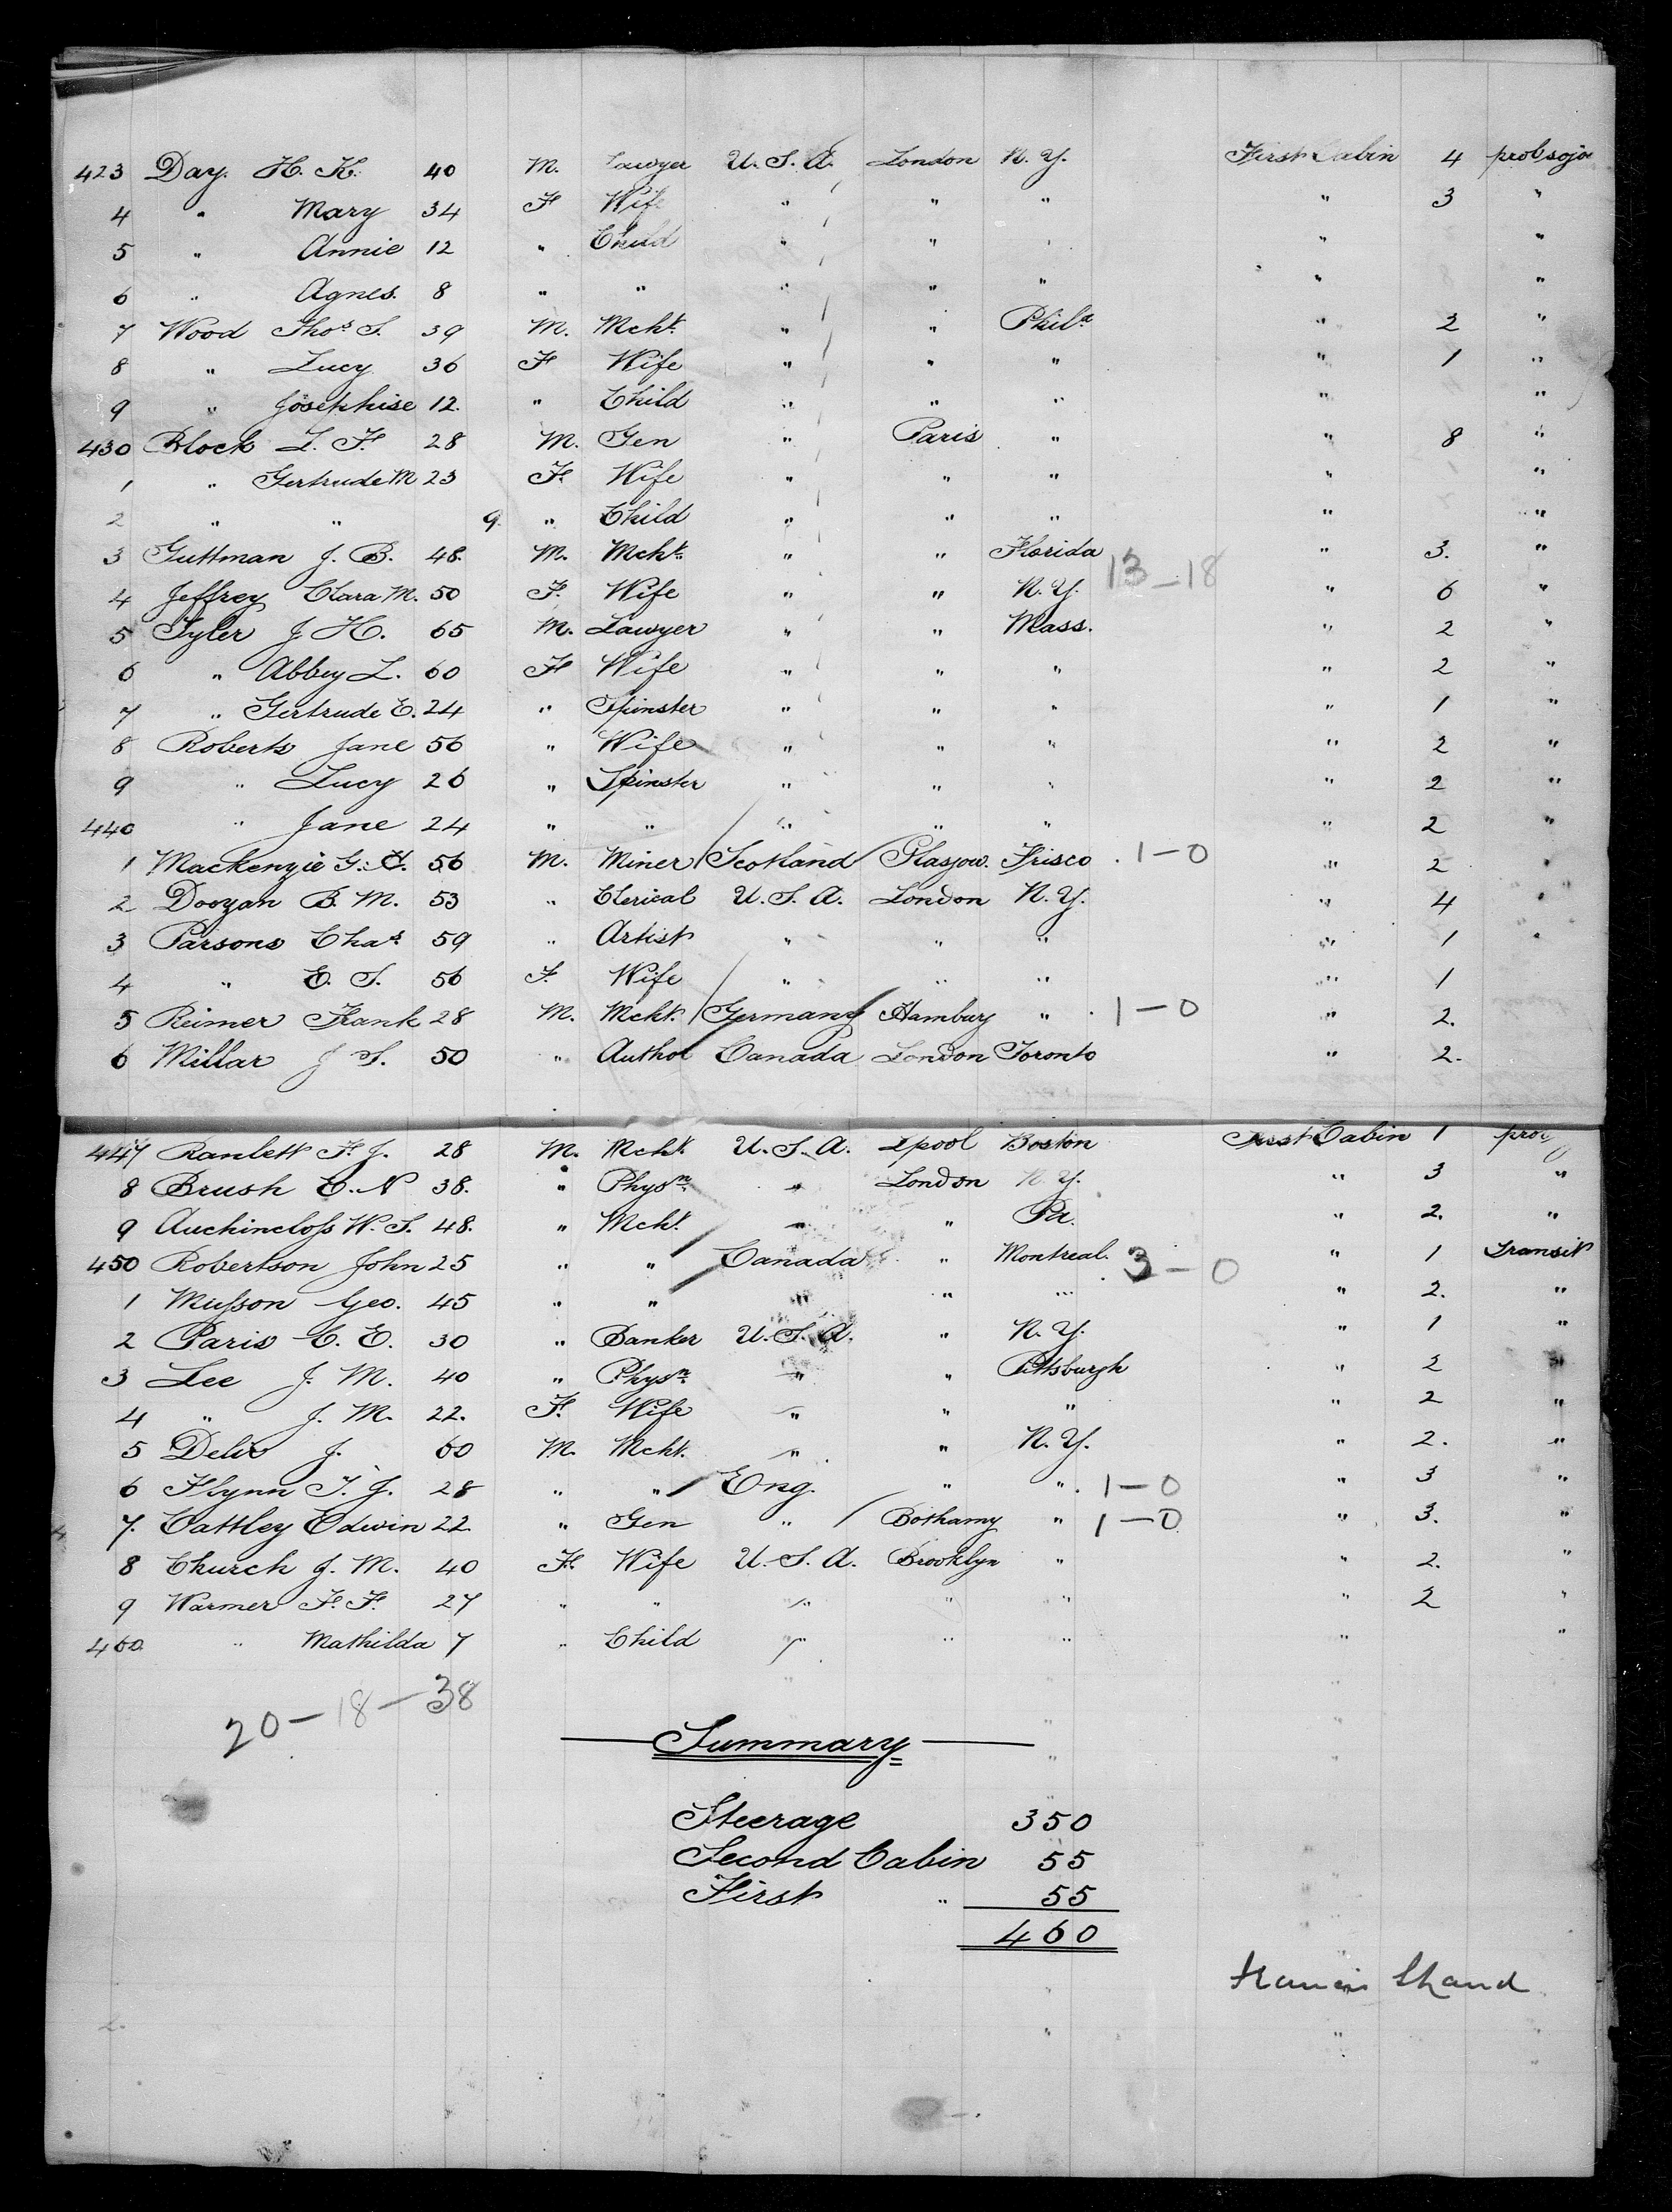 423 Day. H. K. 40 M. Lawyer U.S.A. London N.Y. First Cabin 4
4 " Mary 34 F Wife " " " " 3 "
5 " Annie 12 " Child " " " " "
6 " Agnes. 8 " " " " " " "
7 Wood Thos S. 39 M. Mcht. " " Phila " 2 "
8 " Lucy 36 F Wife " " " " 1 "
9 " Josephise 12. " Child " " " " "
430 Block L. F. 28 M. Gen " Paris " " 8 "
1 " Gertrude M 23 F. Wife " " " " "
2 " " 9 " Child " " " " "
3 Guttman J. B. 48. M. Mcht. " " Florida " 3. "
13-18
4 Jeffrey Clara M. 50 F. Wife " " N.Y. " 6 "
5 Tyler J H. 65 M. Lawyer " " Mass. " 2 "
6 " Abbey L. 60 F Wife " " " " 2 "
7 " Gertrude E. 24 " Spinster " " " " 1 "
8 Roberts Jane 56 " Wife " " " " 2 "
9 " Lucy 26 " Spinster " " " " 2 "
440 " Jane 24 " " " " " " 2 "
1 Mackenzie G. 56 M. Miner Scotland Glasjow. Frisco . 1-0 " 2 "
2 Doozan B. M. 53 " Clerical U.S.A. London N.Y. " 4 "
3 Parsons Chas. 59 " Artist " " " " 1 "
4 " E. S. 56 F. Wife " " " " 1
5 Reimer Frank 28 M. Mcht. Germany Hamburg " . 1-0 " 2.
6 Millar J S. 50 " Author Canada London Toronto " 2.
447 Ranlett F. J. 28 M. Mcht. U.S.A. Lpool Boston First Cabin 1
8 Brush E. N 38. " Physn. " London N.Y. " 3 "
9 Auchincloss W. S. 48. " Mcht. " " Pa. " 2. "
450 Robertson John 25 " " Canada " Montreal. 3-0 " 1 Transit
1 Musson Geo. 45 " " " " " " 2. "
2 Paris C. E. 30 " Banker U.S.A. " N.Y. " 1 "
3 Lee J. M. 40 " Physn. " " Pittsburgh " 2 "
4 " J. M. 22. F. Wife " " " " 2 "
5 J. 60 M. Mcht. " " N.Y. " 2. "
6 Flynn T. J. 28 " " Eng. " " . 1-0 " 3 "
7. Cattley Edwin 22 " Gen " Bothamy " 1-0 " 3. "
8 Church J. M. 40 F. Wife U.S.A. Brooklyn " " 2. "
9 Warmer F. F. 27 " " " " " " 2 "
460 " Mathilda 7 " Child " " " " "
20-18-38
Summary
Steerage 350
Second Cabin 55
First " 55
460
Francis Shand